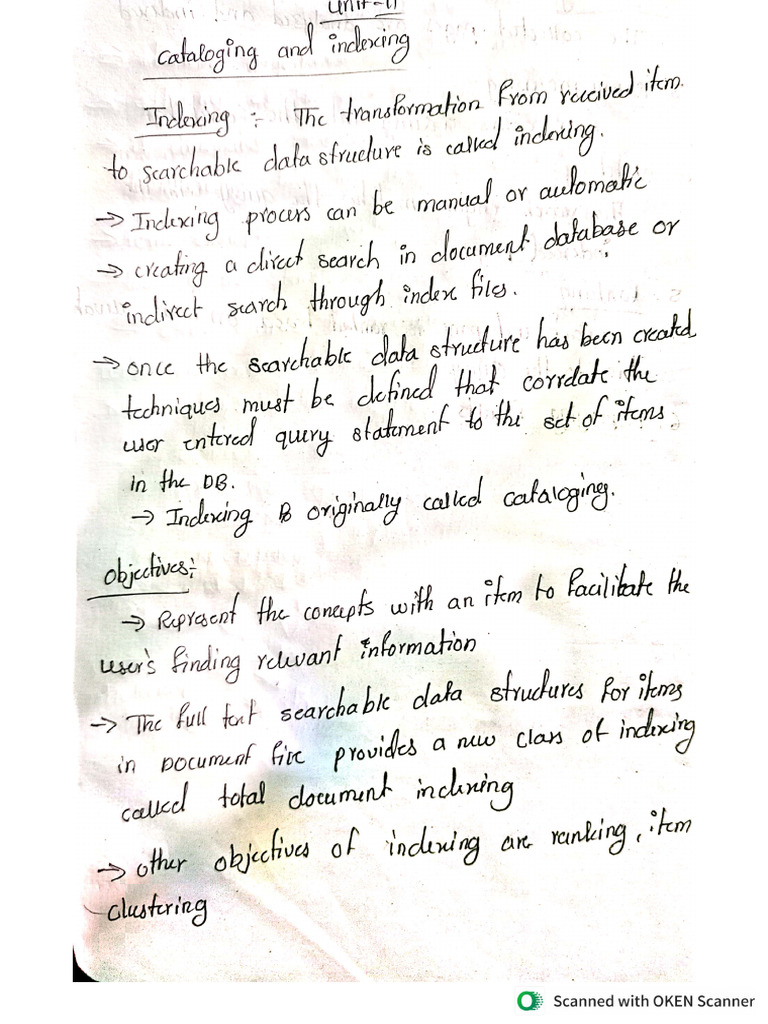 Unit-II
Cataloging and indexing
Indexing :- The transformation from received item
to searchable data structure is called indexing.
→ Indexing process can be manual or automatic
→ creating a direct search in document database or
indirect search through index files.
→ once the searchable data structure has been created
techniques must be defined that correlate the
user entered query statement to the set of items
in the DB.
→ Indexing is originally called cataloging.
Objectives:
→ Represent the concepts with an item to facilitate the
user's finding relevant information
→ The full text searchable data structures for items
in Document file provides a new class of indexing
called total document indexing
→ other objectives of indexing are ranking, item
clustering
Scanned with OKEN Scanner